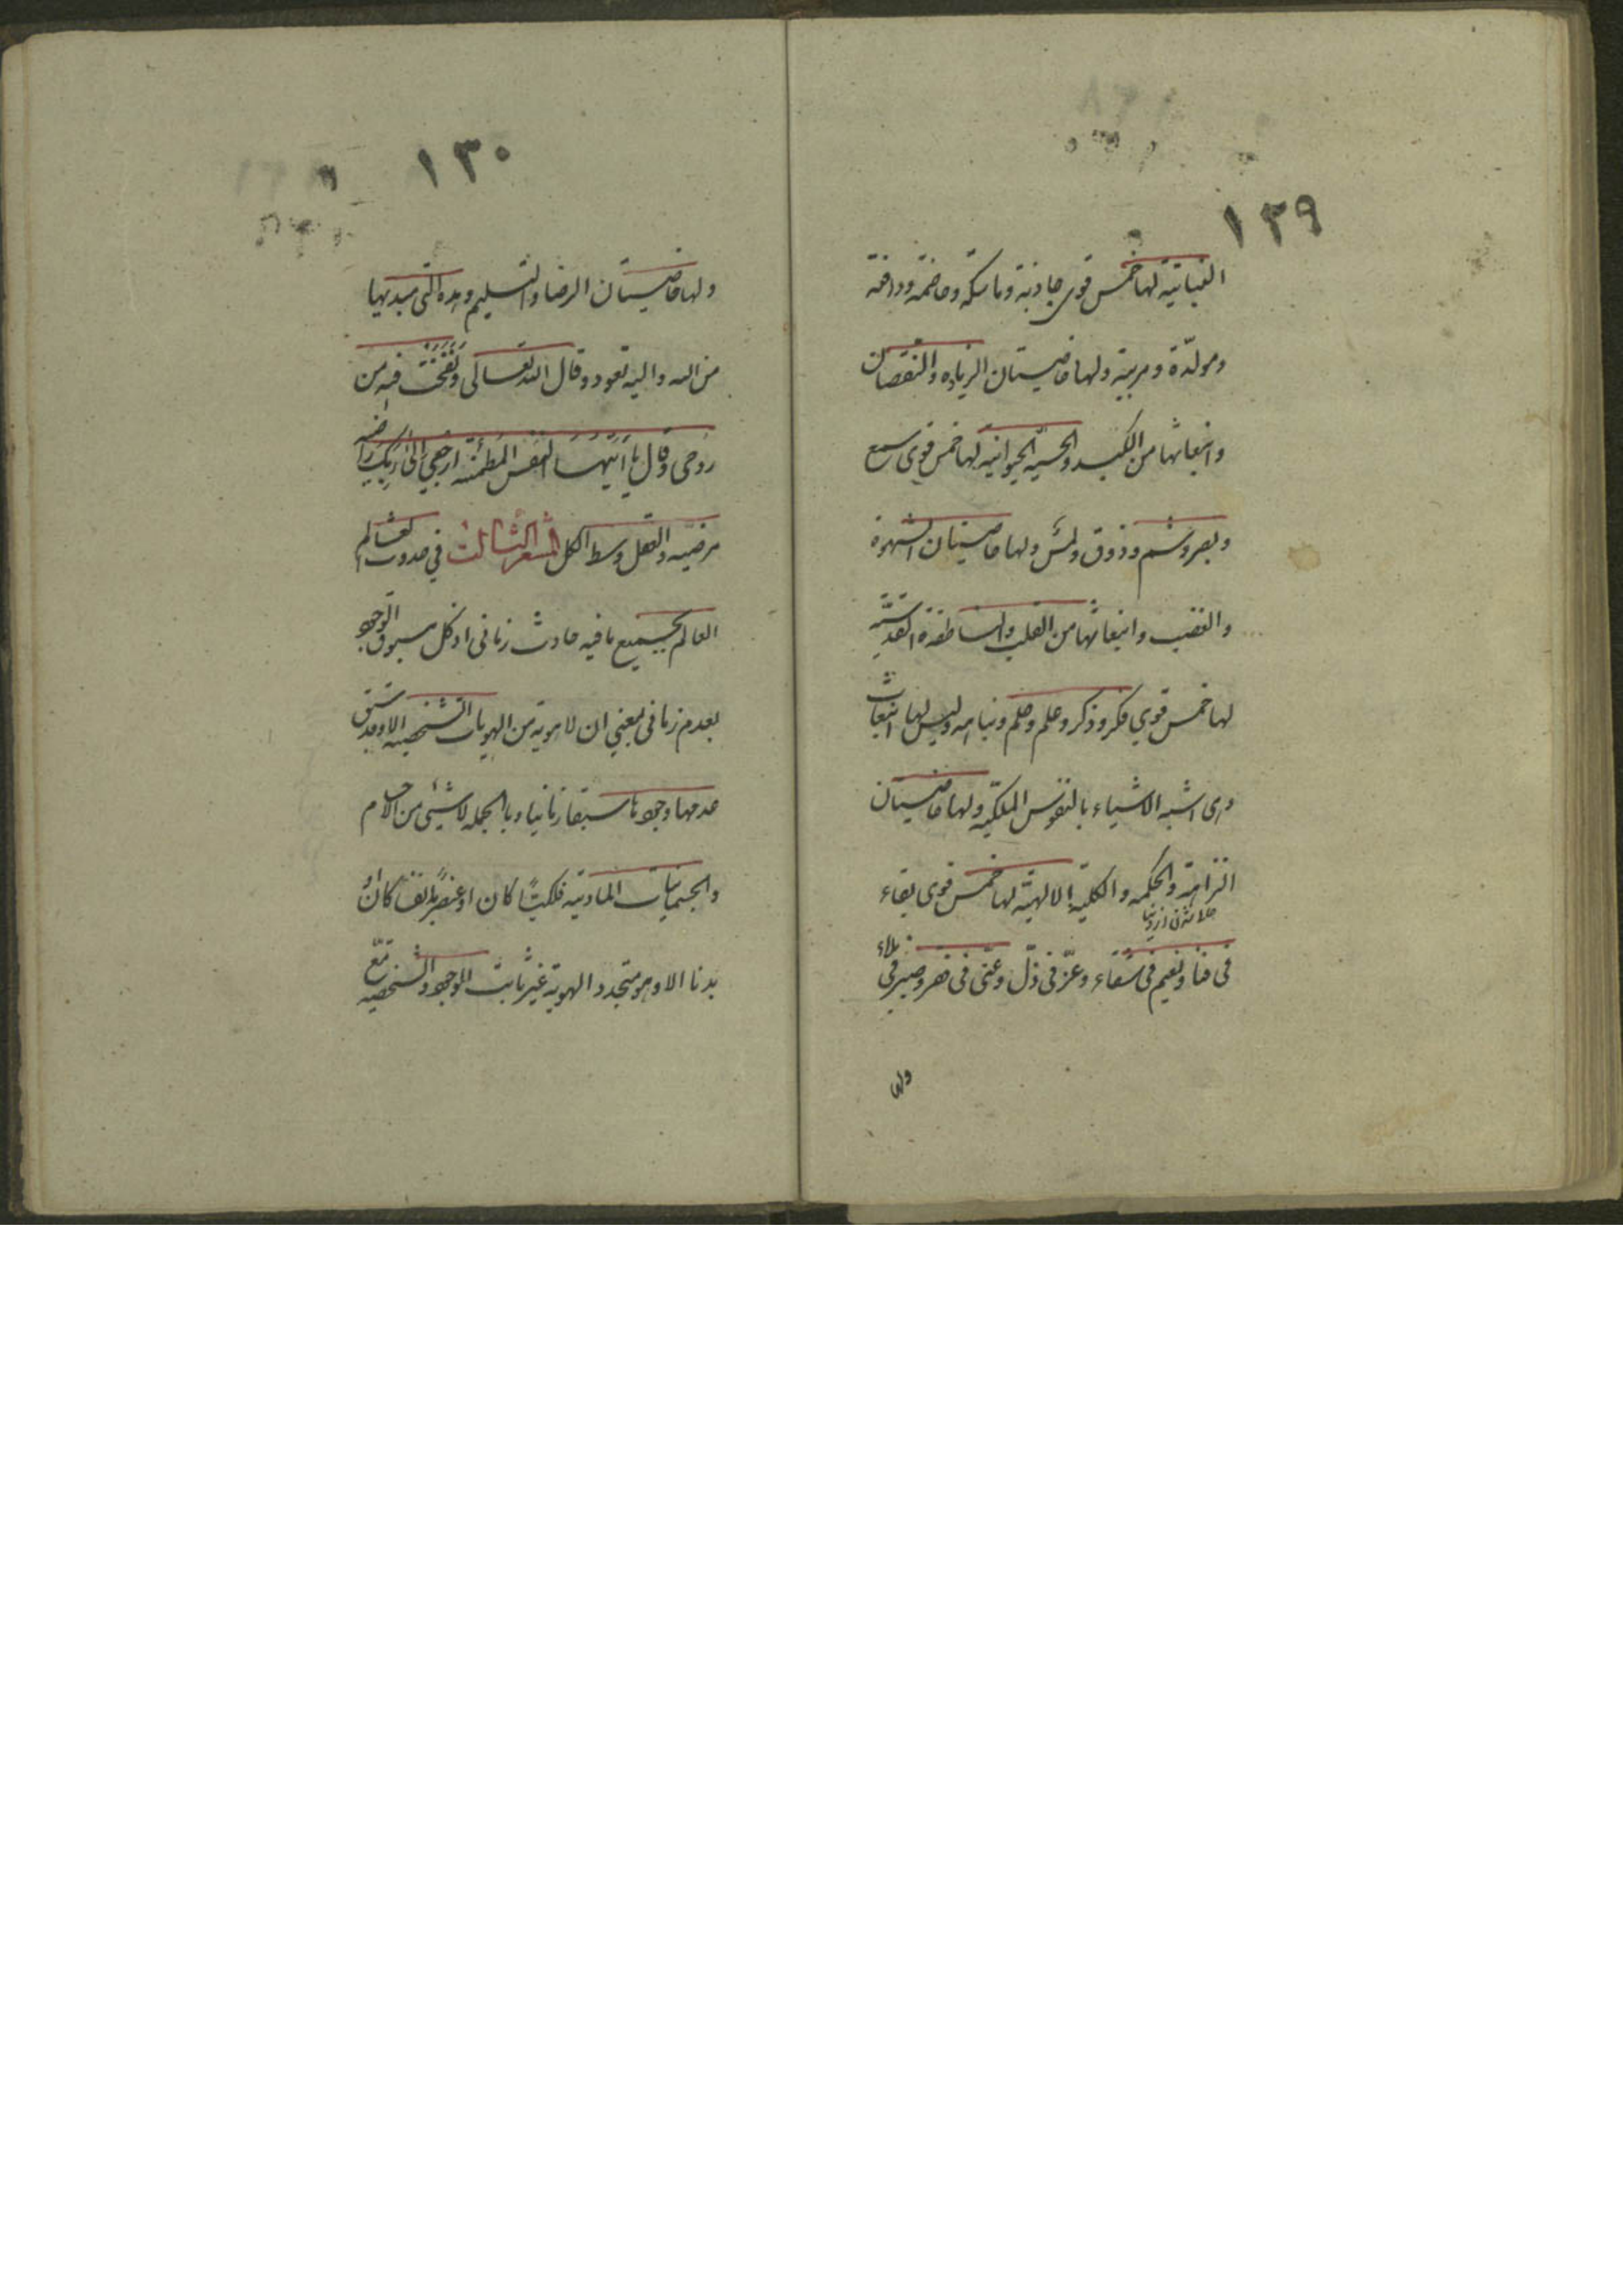 ١٢٩
النباتية لها خمس قوى جاذبة وماسكة وهاضمة ودافعة
ومولّدة ومربية ولها خاصيتان الزياده والنقصان
وانبعاثها من الكبد والحسيه الحيوانيه لها خمس قوى سمع
وبصر وشم وذوق ولمس ولها خاصيتان الشهوة
والغضب وانبعاثها من القلب والناطقة القدسيّة
لها خمس قوي فكر وذكر وعلم وحلم ونباهه وليس لها انبعاث
وهى اشبه الاشياء بالنفوس الملكيّه ولها خاصيتان
النزاهة والحكمه والكلية الالهيّة لها خمس قوى بقاء
فى فنا ونعيم فى شقاء وعزّ فى ذلّ وغنى فى فقر وصبر فى بلاء
ولها
١٣٠
ولها خاصيتان الرضا والتسليم وهذه التى مبديها
من الله واليه تعود وقال الله تعالى وَنَفَخْتُ فيه من
روحى وقال يَا اَيَّتُهَا النَّفْسُ المطمئنه ارجعي اِلىٰ رَبِّكِ راضيه
مرضيه والعقل وسط الكل المشعر الثالث في حدوث العالم
العالم بجميع ما فيه حادث زمانى اذ كل مسبوق الوجود
بعدم زمانى بمعني ان لا هوية من الهويات الشخصيه الا وقد سبق
عدمها وجودها سبقا زمانيا وبالجمله لا شيئى من الاجسام
والجسمانيات المادية فلكيّاً كان او عنصريّاً نفسا كان او
بدنا الا وهو متجدد الهوية غير ثابت الوجود والشخصيه مع